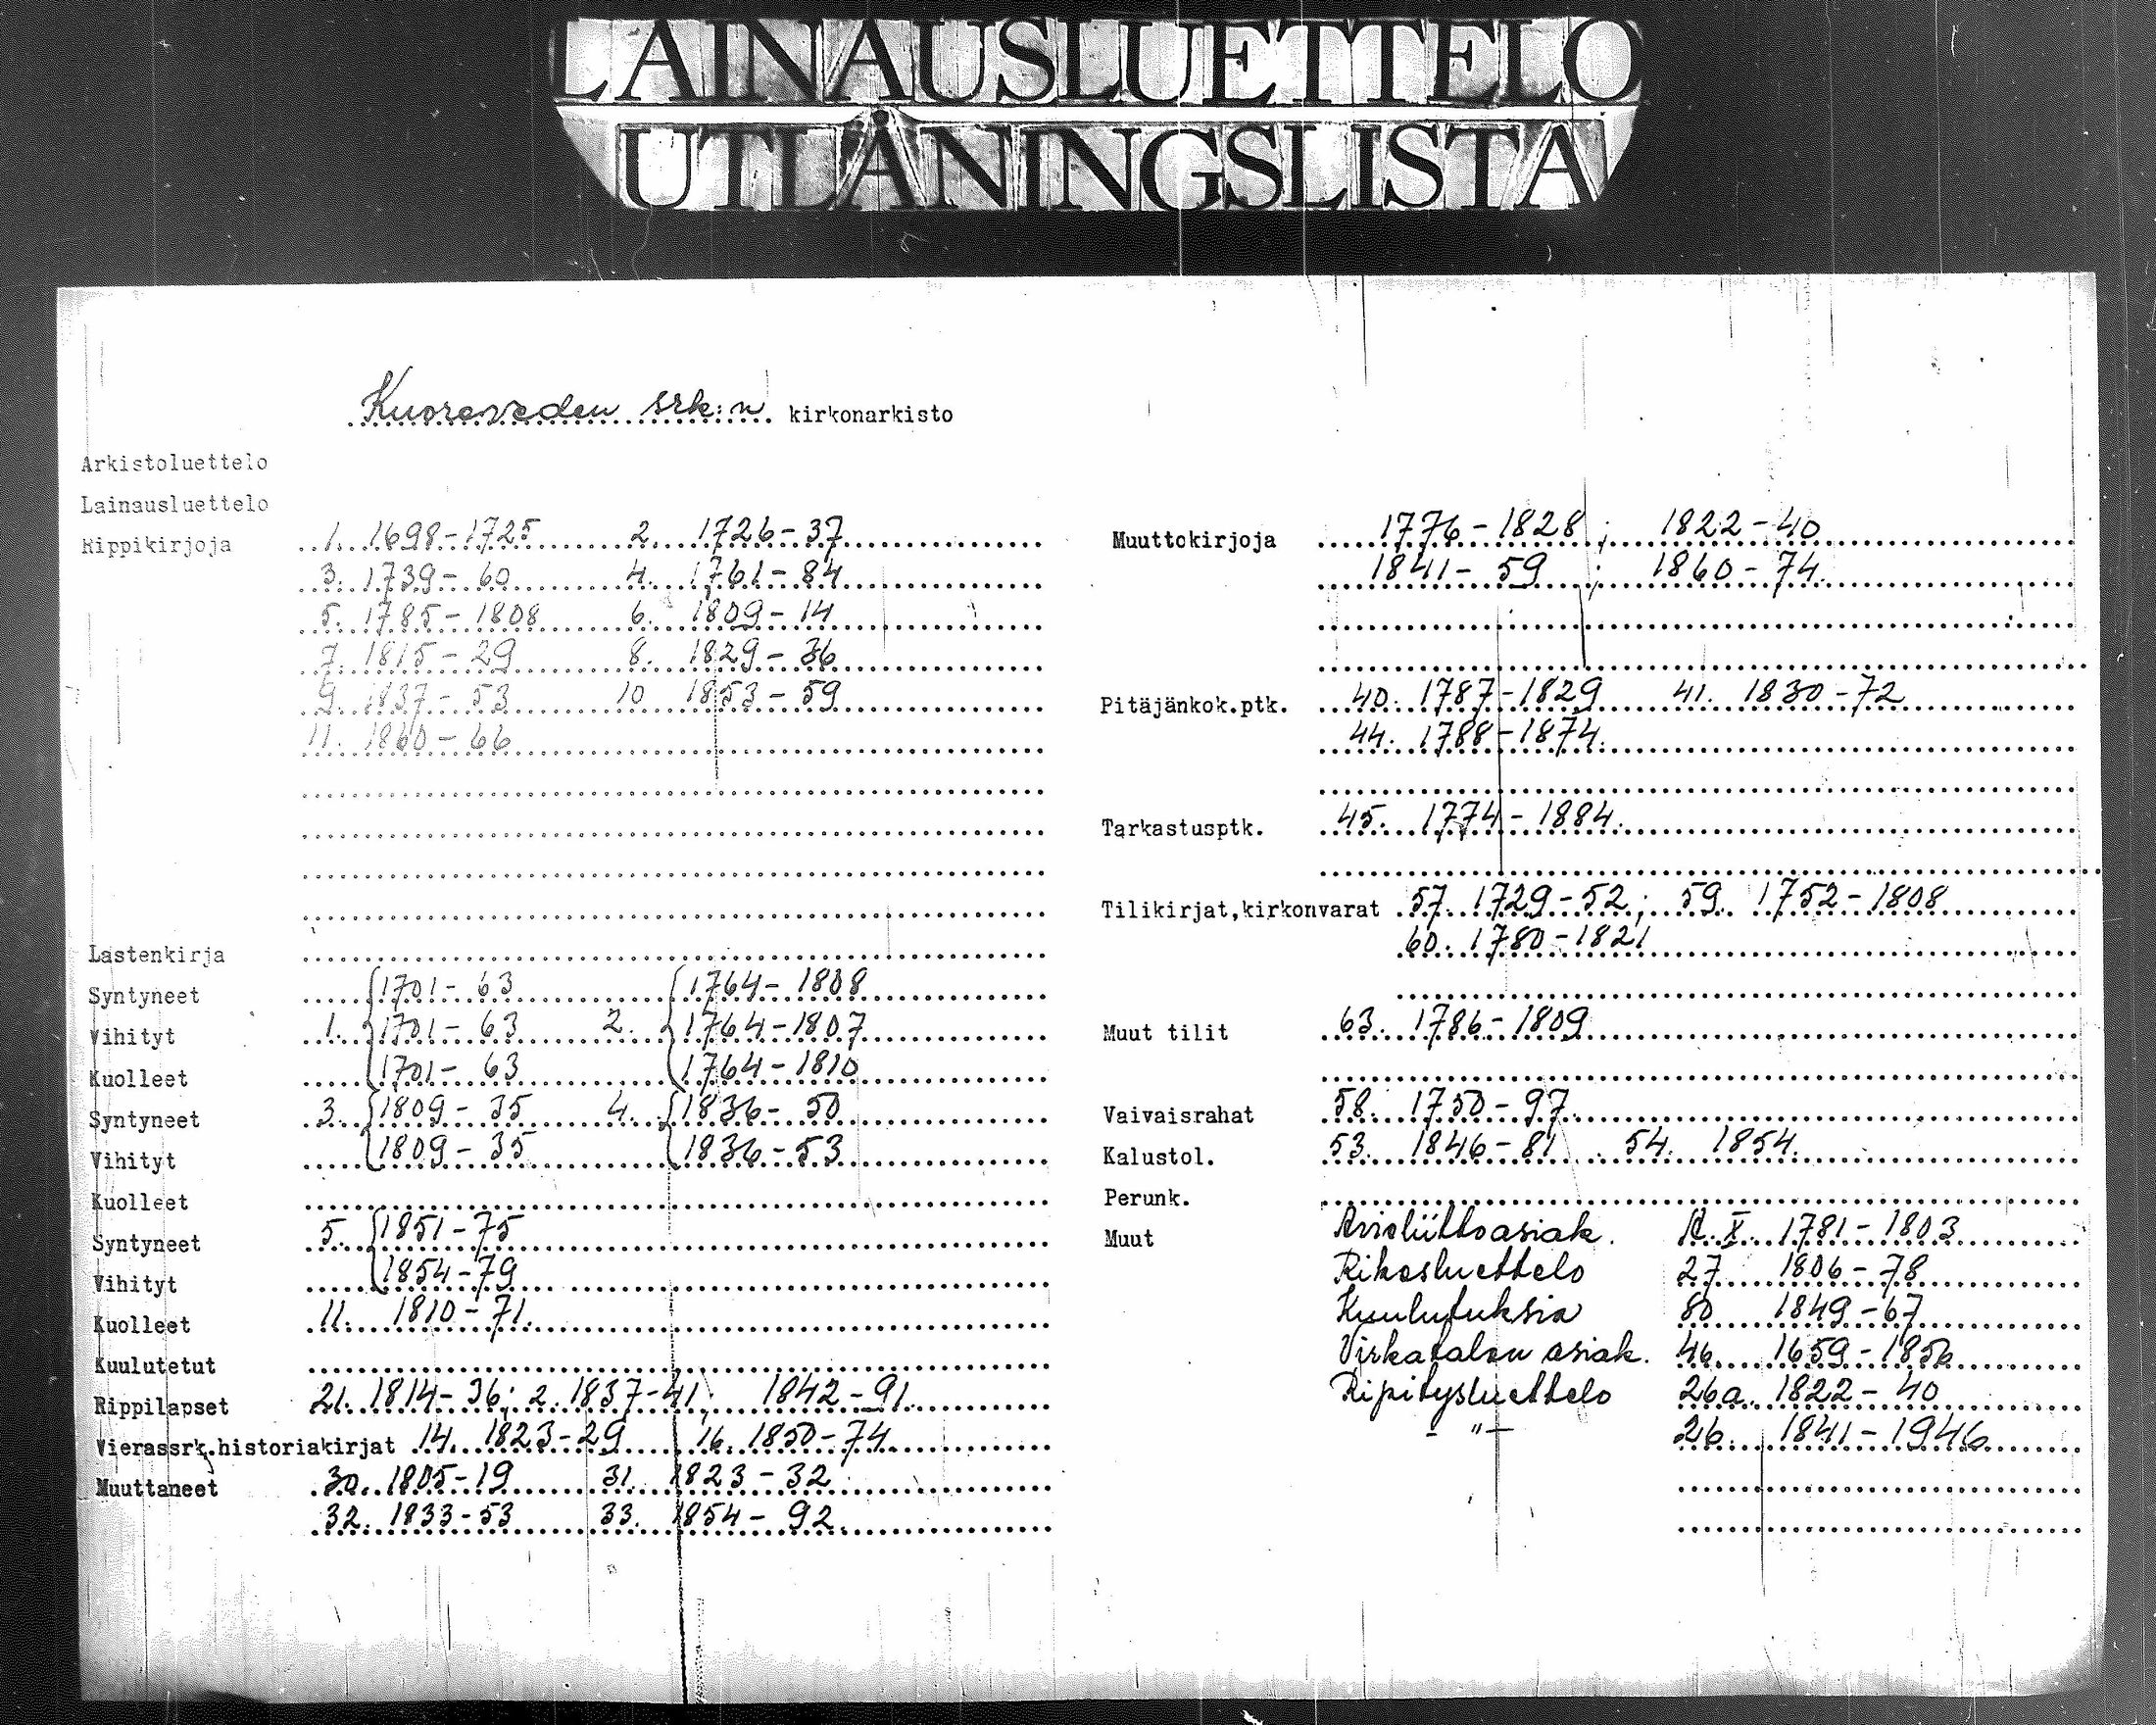 LAINAUSLUETTELO
UTLÅNINGSLISTA
Kuoreveden srk:n kirkonarkisto
Arkistoluettelo
Lainausluettelo
Rippikirjoja 1. 1698-1725 2. 1726-37
3. 1739-60 4. 1761-84
5. 1785-1808 6. 1809-14
7. 1815-29 8. 1829-36
9. 1837-53 10 1853-59
11. 1860-66
Lastenkirja
Syntyneet 1701-63 1764-1808
Vihityt 1. 1701-63 2. 1764-1807
Kuolleet 1701-63 1764-1810
Syntyneet 3. 1809-35 4. 1836-50
Vihityt 1809-35 1836-53
Kuolleet
Syntyneet 5. 1851-75
Vihityt 1854-79
Kuolleet 11. 1810-71.
Kuulutetut
Rippilapset 21. 1814-36; 2. 1837-41, 1842-91.
Vierassrk.historiakirjat 14. 1823-29 16. 1850-74
Muuttaneet 30. 1805-19 31. 1823-32
32. 1833-53 33. 1854-92.
Muuttokirjoja 1776-1828; 1822-40
1841-59; 1860-74.
Pitäjänkok.ptk. 40. 1787-1829 41. 1830-72
44. 1788-1874.
Tarkastusptk. 45. 1774-1884.
Tilikirjat,kirkonvarat 57. 1729-52; 59. 1752-1808
60. 1780-1821
Muut tilit 63. 1786-1809
Vaivaisrahat 58. 1750-97.
Kalustol. 53. 1846-81 54. 1854.
Perunk.
Muut Avioliittoasiak. X. 1781-1803
Rikosluettelo 27 1806-78
Kuulutuksia 80 1849-67
Virkatalon asiak. 46. 1659-1856
Ripitysluettelo 26a. 1822-40
- " - 26. 1841-1946